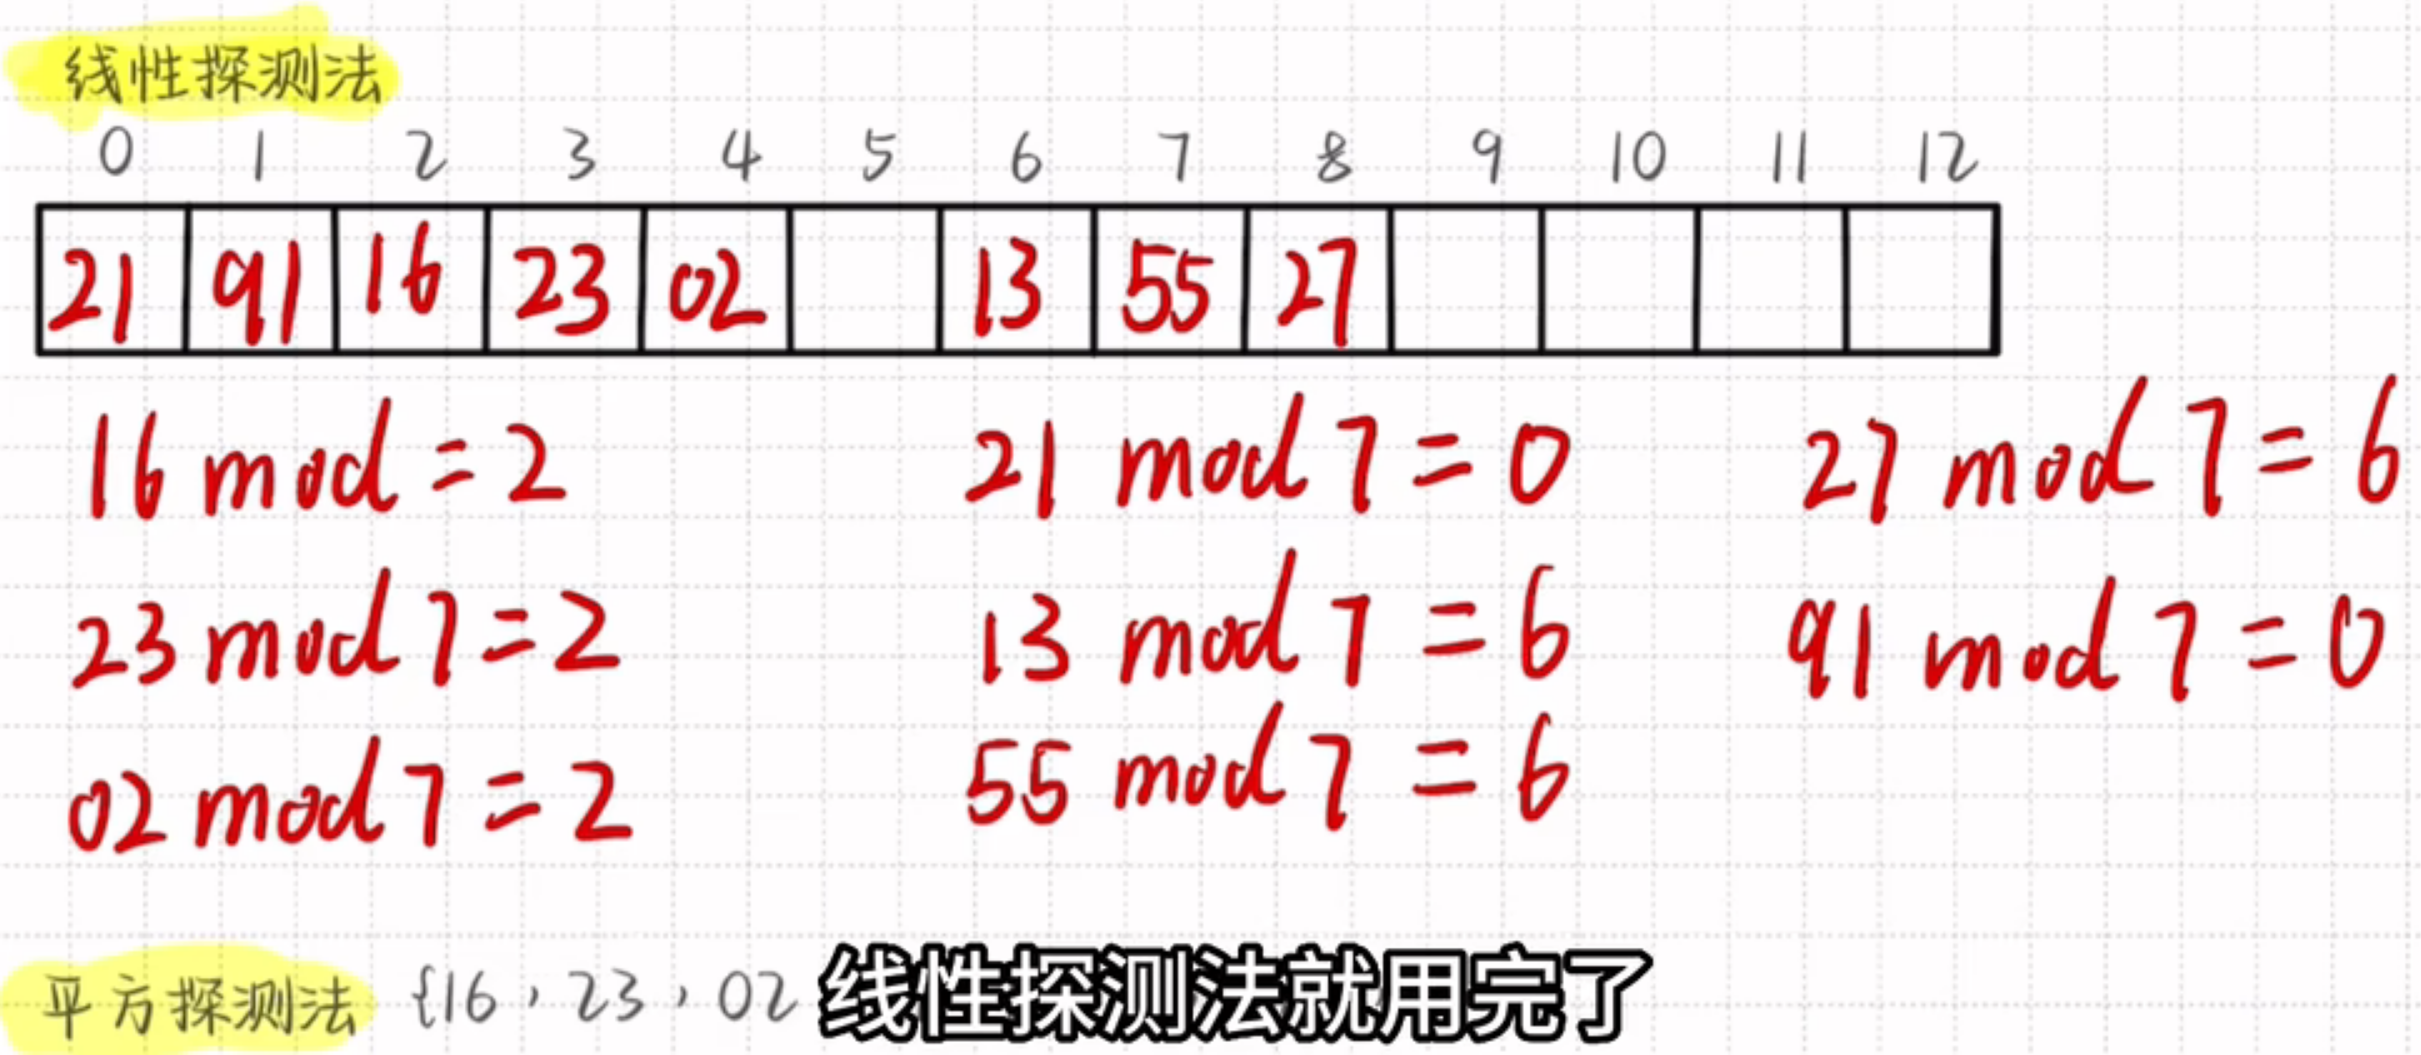 线性探测法
0 1 2 3 4 5 6 7 8 9 10 11 12
21 91 16 23 02 13 55 27
16 mod = 2 21 mod 7 = 0 27 mod 7 = 6
23 mod 7 = 2 13 mod 7 = 6 91 mod 7 = 0
02 mod 7 = 2 55 mod 7 = 6
平方探测法 {16, 23, 02
线性探测法就用完了